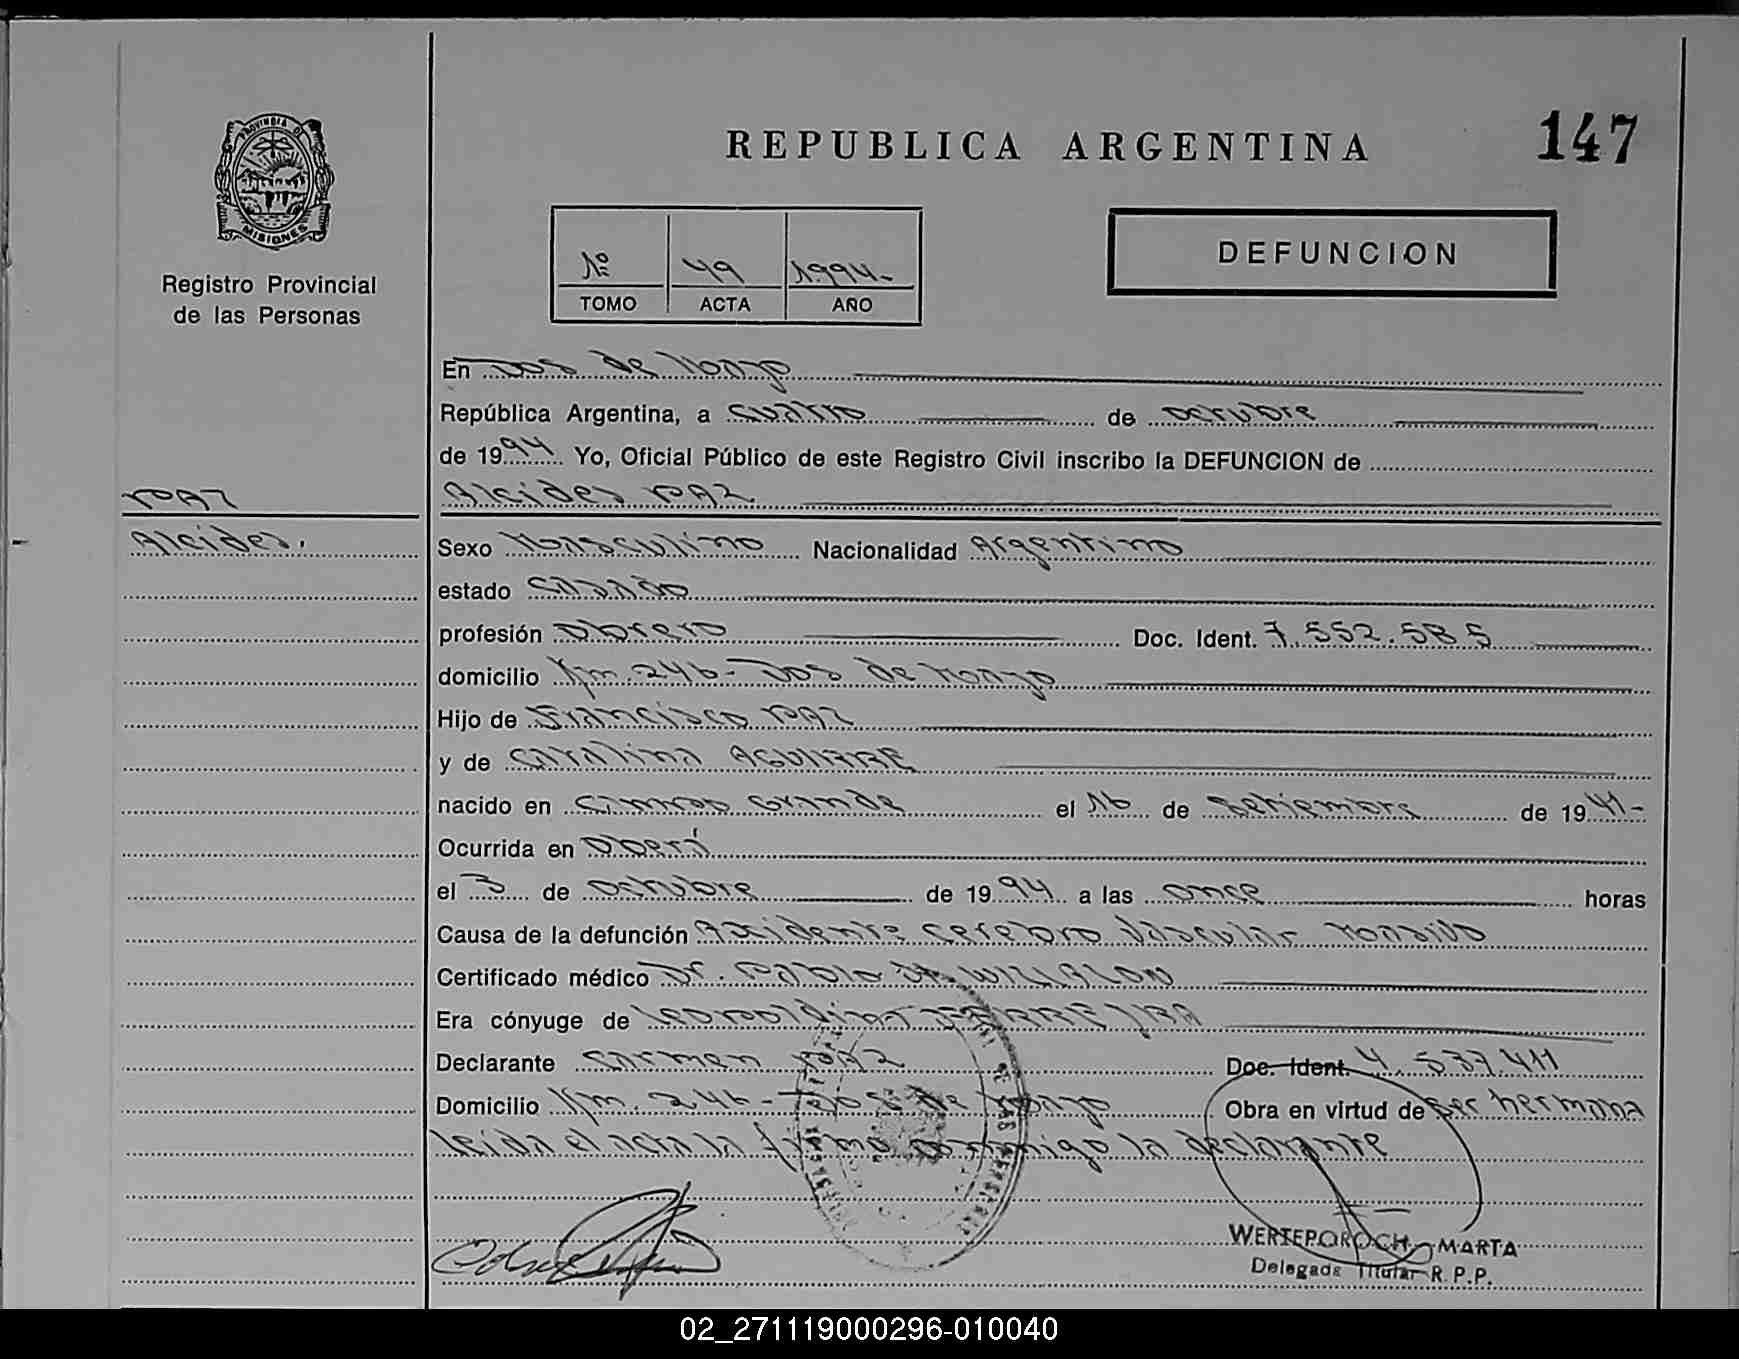 147
REPUBLICA ARGENTINA
PROVINCIA DE
MISIONES
Registro Provincial
de las Personas
Nº 49 1994-
TOMO ACTA AÑO
DEFUNCION
En Dos de Mayo
República Argentina, a cuatro de octubre
de 1994 Yo, Oficial Público de este Registro Civil inscribo la DEFUNCION de
PAZ
Alcides PAZ
Alcides.
Sexo Masculino Nacionalidad Argentino
estado casado
profesión Obrero Doc. Ident. 7.552.585
domicilio Km. 246- Dos de Mayo
Hijo de Francisco PAZ
y de Catalina AGUIRRE
nacido en Campo Grande el 16 de Setiembre de 1941-
Ocurrida en Oberá
el 3 de octubre de 1994 a las once horas
Causa de la defunción Accidente cerebro Vascular Masivo
Certificado médico Dr. Pablo
Era cónyuge de Leopoldina FERREIRA
Declarante Carmen PAZ Doc. Ident. 4.537.411
Domicilio Km. 246- Dos de Mayo Obra en virtud de Ser hermana
leída el acta la firma conmigo la declarante
WERTEPOROCH MARTA
Delegada Titular R.P.P.
02_271119000296-010040